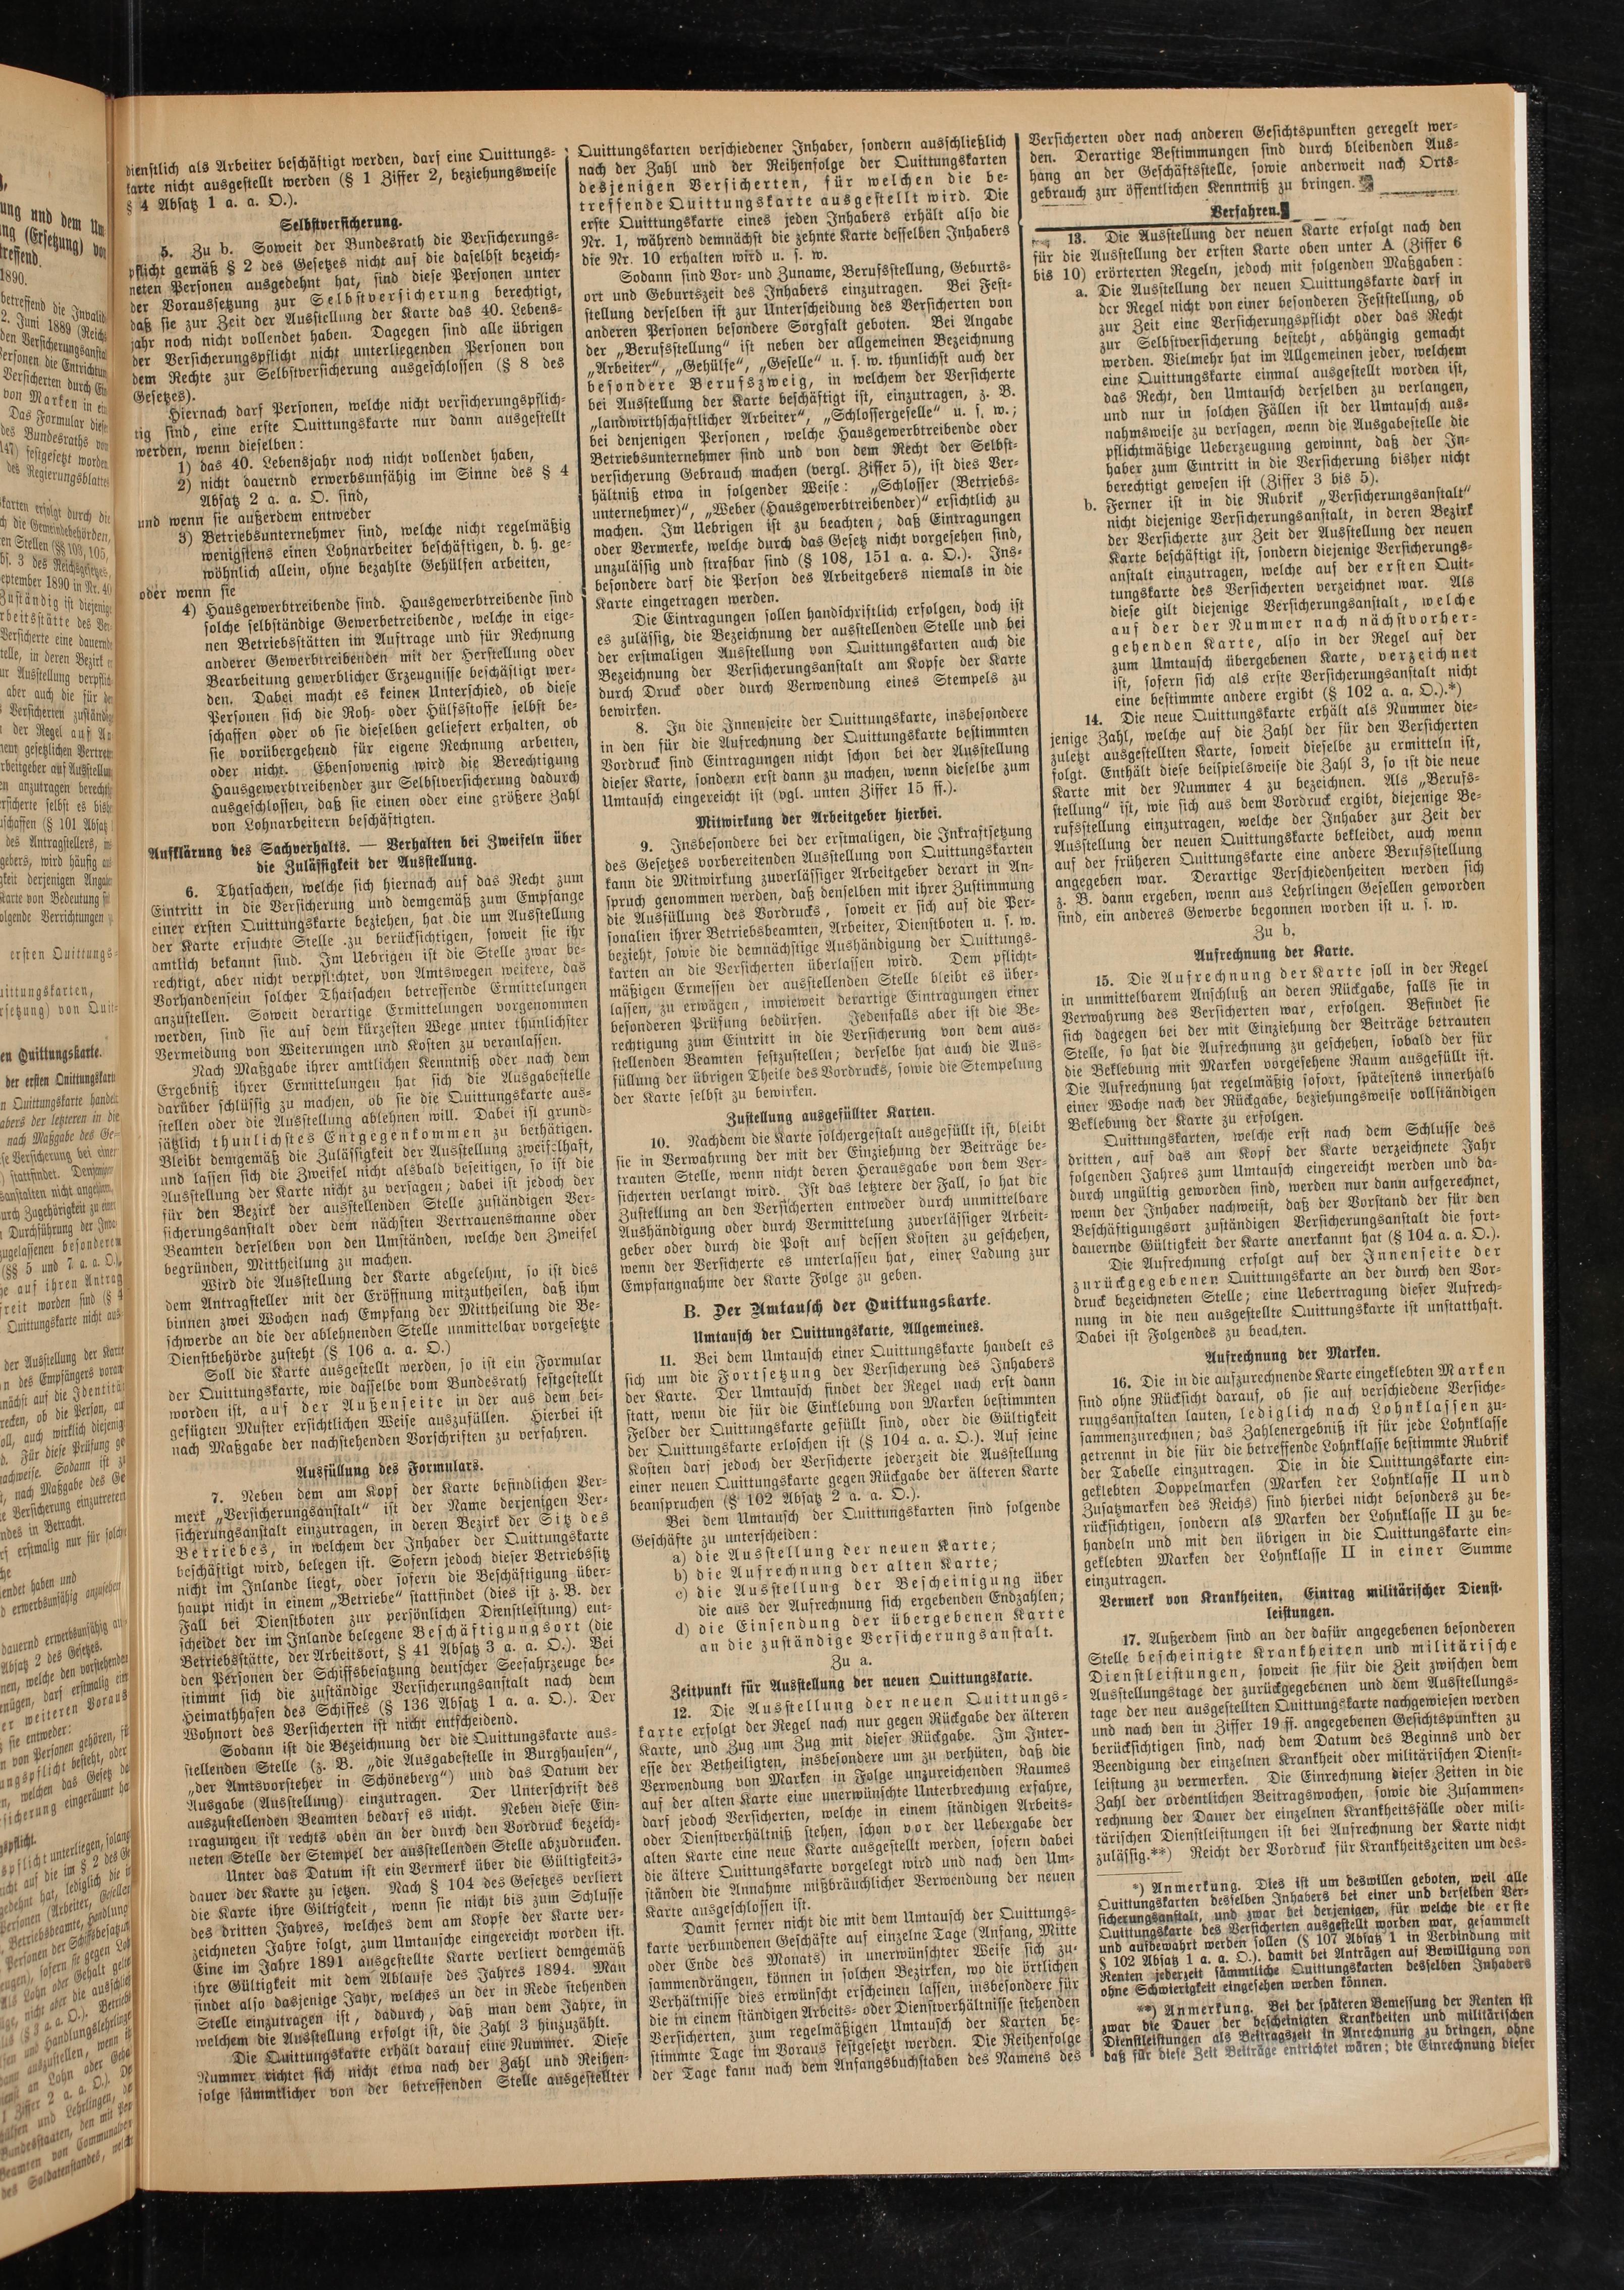 dienstlich als Arbeiter beschäftigt werden, darf eine Quittungs-
karte nicht ausgestellt werden (§ 1 Ziffer 2, beziehungsweise
§ 4 Absatz 1 a. a. O.).
Selbstversicherung.
5. Zu b. Soweit der Bundesrath die Versicherungs-
pflicht gemäß § 2 des Gesetzes nicht auf die daselbst bezeich-
neten Personen ausgedehnt hat, sind diese Personen unter
der Voraussetzung zur Selbstversicherung berechtigt,
daß sie zur Zeit der Ausstellung der Karte das 40. Lebens-
jahr noch nicht vollendet haben. Dagegen sind alle übrigen
der Versicherungspflicht nicht unterliegenden Personen von
dem Rechte zur Selbstversicherung ausgeschlossen (§ 8 des
Gesetzes).
Hiernach darf Personen, welche nicht versicherungspflich-
tig sind, eine erste Quittungskarte nur dann ausgestellt
werden, wenn dieselben:
1) das 40. Lebensjahr noch nicht vollendet haben,
2) nicht dauernd erwerbsunfähig im Sinne des § 4
Absatz 2 a. a. O. sind,
und wenn sie außerdem entweder
3) Betriebsunternehmer sind, welche nicht regelmäßig
wenigstens einen Lohnarbeiter beschäftigen, d. h. ge-
wöhnlich allein, ohne bezahlte Gehülfen arbeiten,
oder wenn sie
4) Hausgewerbtreibende sind. Hausgewerbtreibende sind
solche selbständige Gewerbetreibende, welche in eige-
nen Betriebsstätten im Auftrage und für Rechnung
anderer Gewerbtreibenden mit der Herstellung oder
Bearbeitung gewerblicher Erzeugnisse beschäftigt wer-
den. Dabei macht es keinen Unterschied, ob diese
Personen sich die Roh- oder Hülfsstoffe selbst be-
schaffen oder ob sie dieselben geliefert erhalten, ob
sie vorübergehend für eigene Rechnung arbeiten,
oder nicht. Ebensowenig wird die Berechtigung
Hausgewerbtreibender zur Selbstversicherung dadurch
ausgeschlossen, daß sie einen oder eine größere Zahl
von Lohnarbeitern beschäftigten.
Aufklärung des Sachverhalts. — Verhalten bei Zweifeln über
die Zulässigkeit der Ausstellung.
6. Thatsachen, welche sich hiernach auf das Recht zum
Eintritt in die Versicherung und demgemäß zum Empfange
einer ersten Quittungskarte beziehen, hat die um Ausstellung
der Karte ersuchte Stelle zu berücksichtigen, soweit sie ihr
amtlich bekannt sind. Im Uebrigen ist die Stelle zwar be-
rechtigt, aber nicht verpflichtet, von Amtswegen weitere, das
Vorhandensein solcher Thatsachen betreffende Ermittelungen
anzustellen. Soweit derartige Ermittelungen vorgenommen
werden, sind sie auf dem kürzesten Wege unter thunlichster
Vermeidung von Weiterungen und Kosten zu veranlassen.
Nach Maßgabe ihrer amtlichen Kenntniß oder nach dem
Ergebniß ihrer Ermittelungen hat sich die Ausgabestelle
darüber schlüssig zu machen, ob sie die Quittungskarte aus-
stellen oder die Ausstellung ablehnen will. Dabei ist grund-
sätzlich thunlichstes Entgegenkommen zu bethätigen.
Bleibt demgemäß die Zulässigkeit der Ausstellung zweifelhaft,
und lassen sich die Zweifel nicht alsbald beseitigen, so ist die
Ausstellung der Karte nicht zu versagen; dabei ist jedoch der
für den Bezirk der ausstellenden Stelle zuständigen Ver-
sicherungsanstalt oder dem nächsten Vertrauensmanne oder
Beamten derselben von den Umständen, welche den Zweifel
begründen, Mittheilung zu machen.
Wird die Ausstellung der Karte abgelehnt, so ist dies
dem Antragsteller mit der Eröffnung mitzutheilen, daß ihm
binnen zwei Wochen nach Empfang der Mittheilung die Be-
schwerde an die der ablehnenden Stelle unmittelbar vorgesetzte
Dienstbehörde zusteht (§ 106 a. a. O.)
Soll die Karte ausgestellt werden, so ist ein Formular
der Quittungskarte, wie dasselbe vom Bundesrath festgestellt
worden ist, auf der Außenseite in der aus dem bei-
gefügten Muster ersichtlichen Weise auszufüllen. Hierbei ist
nach Maßgabe der nachstehenden Vorschriften zu verfahren.
Ausfüllung des Formulars.
7. Neben dem am Kopf der Karte befindlichen Ver-
merk „Versicherungsanstalt“ ist der Name derjenigen Ver-
sicherungsanstalt einzutragen, in deren Bezirk der Sitz des
Betriebes, in welchem der Inhaber der Quittungskarte
beschäftigt wird, belegen ist. Sofern jedoch dieser Betriebssitz
nicht im Inlande liegt, oder sofern die Beschäftigung über-
haupt nicht in einem „Betriebe“ stattfindet (dies ist z. B. der
Fall bei Dienstboten zur persönlichen Dienstleistung) ent-
scheidet der im Inlande belegene Beschäftigungsort (die
Betriebsstätte, der Arbeitsort, § 41 Absatz 3 a. a. O.). Bei
den Personen der Schiffsbesatzung deutscher Seefahrzeuge be-
stimmt sich die zuständige Versicherungsanstalt nach dem
Heimathhafen des Schiffes (§ 136 Absatz 1 a. a. O.). Der
Wohnort des Versicherten ist nicht entscheidend.
Sodann ist die Bezeichnung der die Quittungskarte aus-
stellenden Stelle (z. B. „die Ausgabestelle in Burghausen“,
„der Amtsvorsteher in Schöneberg“) und das Datum der
Ausgabe (Ausstellung) einzutragen. Der Unterschrift des
auszustellenden Beamten bedarf es nicht. Neben diese Ein-
tragungen ist rechts oben an der durch den Vordruck bezeich-
neten Stelle der Stempel der ausstellenden Stelle abzudrucken.
Unter das Datum ist ein Vermerk über die Gültigkeits-
dauer der Karte zu setzen. Nach § 104 des Gesetzes verliert
die Karte ihre Giltigkeit, wenn sie nicht bis zum Schlusse
des dritten Jahres, welches dem am Kopfe der Karte ver-
zeichneten Jahre folgt, zum Umtausche eingereicht worden ist.
Eine im Jahre 1891 ausgestellte Karte verliert demgemäß
ihre Gültigkeit mit dem Ablaufe des Jahres 1894. Man
findet also dasjenige Jahr, welches an der in Rede stehenden
Stelle einzutragen ist, dadurch, daß man dem Jahre, in
welchem die Ausstellung erfolgt ist, die Zahl 3 hinzuzählt.
Die Quittungskarte erhält darauf eine Nummer. Diese
Nummer richtet sich nicht etwa nach der Zahl und Reihen-
folge sämmtlicher von der betreffenden Stelle ausgestellter
Quittungskarten verschiedener Inhaber, sondern ausschließlich
nach der Zahl und der Reihenfolge der Quittungskarten
desjenigen Versicherten, für welchen die be-
treffende Quittungskarte ausgestellt wird. Die
erste Quittungskarte eines jeden Inhabers erhält also die
Nr. 1, während demnächst die zehnte Karte desselben Inhabers
die Nr. 10 erhalten wird u. s. w.
Sodann sind Vor- und Zuname, Berufsstellung, Geburts-
ort und Geburtszeit des Inhabers einzutragen. Bei Fest-
stellung derselben ist zur Unterscheidung des Versicherten von
anderen Personen besondere Sorgfalt geboten. Bei Angabe
der „Berufsstellung“ ist neben der allgemeinen Bezeichnung
„Arbeiter“, „Gehülfe“, „Geselle“ u. s. w. thunlichst auch der
besondere Berufszweig, in welchem der Versicherte
bei Ausstellung der Karte beschäftigt ist, einzutragen, z. B.
„landwirthschaftlicher Arbeiter“, „Schlossergeselle“ u. s. w.;
bei denjenigen Personen, welche Hausgewerbtreibende oder
Betriebsunternehmer sind und von dem Recht der Selbst-
versicherung Gebrauch machen (vergl. Ziffer 5), ist dies Ver-
hältniß etwa in folgender Weise: „Schlosser (Betriebs-
unternehmer)“, „Weber (Hausgewerbtreibender)“ ersichtlich zu
machen. Im Uebrigen ist zu beachten, daß Eintragungen
oder Vermerke, welche durch das Gesetz nicht vorgesehen sind,
unzulässig und strafbar sind (§ 108, 151 a. a. O.). Ins-
besondere darf die Person des Arbeitgebers niemals in die
Karte eingetragen werden.
Die Eintragungen sollen handschriftlich erfolgen, doch ist
es zulässig, die Bezeichnung der ausstellenden Stelle und bei
der erstmaligen Ausstellung von Quittungskarten auch die
Bezeichnung der Versicherungsanstalt am Kopfe der Karte
durch Druck oder durch Verwendung eines Stempels zu
bewirken.
8. In die Innenseite der Quittungskarte, insbesondere
in den für die Aufrechnung der Quittungskarte bestimmten
Vordruck sind Eintragungen nicht schon bei der Ausstellung
dieser Karte, sondern erst dann zu machen, wenn dieselbe zum
Umtausch eingereicht ist (vgl. unten Ziffer 15 ff.).
Mitwirkung der Arbeitgeber hierbei.
9. Insbesondere bei der erstmaligen, die Inkraftsetzung
des Gesetzes vorbereitenden Ausstellung von Quittungskarten
kann die Mitwirkung zuverlässiger Arbeitgeber derart in An-
spruch genommen werden, daß denselben mit ihrer Zustimmung
die Ausfüllung des Vordrucks, soweit er sich auf die Per-
sonalien ihrer Betriebsbeamten, Arbeiter, Dienstboten u. s. w.
bezieht, sowie die demnächstige Aushändigung der Quittungs-
karten an die Versicherten überlassen wird. Dem pflicht-
mäßigen Ermessen der ausstellenden Stelle bleibt es über-
lassen, zu erwägen, inwieweit derartige Eintragungen einer
besonderen Prüfung bedürfen. Jedenfalls aber ist die Be-
rechtigung zum Eintritt in die Versicherung von dem aus-
stellenden Beamten festzustellen; derselbe hat auch die Aus-
füllung der übrigen Theile des Vordrucks, sowie die Stempelung
der Karte selbst zu bewirken.
Zustellung ausgefüllter Karten.
10. Nachdem die Karte solchergestalt ausgefüllt ist, bleibt
sie in Verwahrung der mit der Einziehung der Beiträge be-
trauten Stelle, wenn nicht deren Herausgabe von dem Ver-
sicherten verlangt wird. Ist das letztere der Fall, so hat die
Zustellung an den Versicherten entweder durch unmittelbare
Aushändigung oder durch Vermittelung zuverlässiger Arbeit-
geber oder durch die Post auf dessen Kosten zu geschehen,
wenn der Versicherte es unterlassen hat, einer Ladung zur
Empfangnahme der Karte Folge zu geben.
B. Der Umtausch der Quittungskarte.
Umtausch der Quittungskarte, Allgemeines.
11. Bei dem Umtausch einer Quittungskarte handelt es
sich um die Fortsetzung der Versicherung des Inhabers
der Karte. Der Umtausch findet der Regel nach erst dann
statt, wenn die für die Einklebung von Marken bestimmten
Felder der Quittungskarte gefüllt sind, oder die Gültigkeit
der Quittungskarte erloschen ist (§ 104 a. a. O.). Auf seine
Kosten darf jedoch der Versicherte jederzeit die Ausstellung
einer neuen Quittungskarte gegen Rückgabe der älteren Karte
beanspruchen (§ 102 Absatz 2 a. a. O.).
Bei dem Umtausch der Quittungskarten sind folgende
Geschäfte zu unterscheiden:
a) die Ausstellung der neuen Karte;
b) die Aufrechnung der alten Karte;
c) die Ausstellung der Bescheinigung über
die aus der Aufrechnung sich ergebenden Endzahlen;
d) die Einsendung der übergebenen Karte
an die zuständige Versicherungsanstalt.
Zu a.
Zeitpunkt für Ausstellung der neuen Quittungskarte.
12. Die Ausstellung der neuen Quittungs-
karte erfolgt der Regel nach nur gegen Rückgabe der älteren
Karte, und Zug um Zug mit dieser Rückgabe. Im Inter-
esse der Betheiligten, insbesondere um zu verhüten, daß die
Verwendung von Marken in Folge unzureichenden Raumes
auf der alten Karte eine unerwünschte Unterbrechung erfahre,
darf jedoch Versicherten, welche in einem ständigen Arbeits-
oder Dienstverhältniß stehen, schon vor der Uebergabe der
alten Karte eine neue Karte ausgestellt werden, sofern dabei
die ältere Quittungskarte vorgelegt wird und nach den Um-
ständen die Annahme mißbräuchlicher Verwendung der neuen
Karte ausgeschlossen ist.
Damit ferner nicht die mit dem Umtausch der Quittungs-
karte verbundenen Geschäfte auf einzelne Tage (Anfang, Mitte
oder Ende des Monats) in unerwünschter Weise sich zu-
sammendrängen, können in solchen Bezirken, wo die örtlichen
Verhältnisse dies erwünscht erscheinen lassen, insbesondere für
die in einem ständigen Arbeits- oder Dienstverhältnisse stehenden
Versicherten, zum regelmäßigen Umtausch der Karten be-
stimmte Tage im Voraus festgesetzt werden. Die Reihenfolge
der Tage kann nach dem Anfangsbuchstaben des Namens des
Versicherten oder nach anderen Gesichtspunkten geregelt wer-
den. Derartige Bestimmungen sind durch bleibenden Aus-
hang an der Geschäftsstelle, sowie anderweit nach Orts-
gebrauch zur öffentlichen Kenntniß zu bringen.
Verfahren.
13. Die Ausstellung der neuen Karte erfolgt nach den
für die Ausstellung der ersten Karte oben unter A (Ziffer 6
bis 10) erörterten Regeln, jedoch mit folgenden Maßgaben:
a. Die Ausstellung der neuen Quittungskarte darf in
der Regel nicht von einer besonderen Feststellung, ob
zur Zeit eine Versicherungspflicht oder das Recht
zur Selbstversicherung besteht, abhängig gemacht
werden. Vielmehr hat im Allgemeinen jeder, welchem
eine Quittungskarte einmal ausgestellt worden ist,
das Recht, den Umtausch derselben zu verlangen,
und nur in solchen Fällen ist der Umtausch aus-
nahmsweise zu versagen, wenn die Ausgabestelle die
pflichtmäßige Ueberzeugung gewinnt, daß der In-
haber zum Eintritt in die Versicherung bisher nicht
berechtigt gewesen ist (Ziffer 3 bis 5).
b. Ferner ist in die Rubrik „Versicherungsanstalt“
nicht diejenige Versicherungsanstalt, in deren Bezirk
der Versicherte zur Zeit der Ausstellung der neuen
Karte beschäftigt ist, sondern diejenige Versicherungs-
anstalt einzutragen, welche auf der ersten Quit-
tungskarte des Versicherten verzeichnet war. Als
diese gilt diejenige Versicherungsanstalt, welche
auf der der Nummer nach nächstvorher-
gehenden Karte, also in der Regel auf der
zum Umtausch übergebenen Karte, verzeichnet
ist, sofern sich als erste Versicherungsanstalt nicht
eine bestimmte andere ergibt (§ 102 a. a. O.).*)
14. Die neue Quittungskarte erhält als Nummer die-
jenige Zahl, welche auf die Zahl der für den Versicherten
zuletzt ausgestellten Karte, soweit dieselbe zu ermitteln ist,
folgt. Enthält diese beispielsweise die Zahl 3, so ist die neue
Karte mit der Nummer 4 zu bezeichnen. Als „Berufs-
stellung“ ist, wie sich aus dem Vordruck ergibt, diejenige Be-
rufsstellung einzutragen, welche der Inhaber zur Zeit der
Ausstellung der neuen Quittungskarte bekleidet, auch wenn
auf der früheren Quittungskarte eine andere Berufsstellung
angegeben war. Derartige Verschiedenheiten werden sich
z. B. dann ergeben, wenn aus Lehrlingen Gesellen geworden
sind, ein anderes Gewerbe begonnen worden ist u. s. w.
Zu b.
Aufrechnung der Karte.
15. Die Aufrechnung der Karte soll in der Regel
in unmittelbarem Anschluß an deren Rückgabe, falls sie in
Verwahrung des Versicherten war, erfolgen. Befindet sie
sich dagegen bei der mit Einziehung der Beiträge betrauten
Stelle, so hat die Aufrechnung zu geschehen, sobald der für
die Beklebung mit Marken vorgesehene Raum ausgefüllt ist.
Die Aufrechnung hat regelmäßig sofort, spätestens innerhalb
einer Woche nach der Rückgabe, beziehungsweise vollständigen
Beklebung der Karte zu erfolgen.
Quittungskarten, welche erst nach dem Schlusse des
dritten, auf das am Kopf der Karte verzeichnete Jahr
folgenden Jahres zum Umtausch eingereicht werden und da-
durch ungültig geworden sind, werden nur dann aufgerechnet,
wenn der Inhaber nachweist, daß der Vorstand der für den
Beschäftigungsort zuständigen Versicherungsanstalt die fort-
dauernde Gültigkeit der Karte anerkannt hat (§ 104 a. a. O.).
Die Aufrechnung erfolgt auf der Innenseite der
zurückgegebenen Quittungskarte an der durch den Vor-
druck bezeichneten Stelle; eine Uebertragung dieser Aufrech-
nung in die neu ausgestellte Quittungskarte ist unstatthaft.
Dabei ist Folgendes zu beachten.
Aufrechnung der Marken.
16. Die in die aufzurechnende Karte eingeklebten Marken
sind ohne Rücksicht darauf, ob sie auf verschiedene Versiche-
rungsanstalten lauten, lediglich nach Lohnklassen zu-
sammenzurechnen; das Zahlenergebniß ist für jede Lohnklasse
getrennt in die für die betreffende Lohnklasse bestimmte Rubrik
der Tabelle einzutragen. Die in die Quittungskarte ein-
geklebten Doppelmarken (Marken der Lohnklasse II und
Zusatzmarken des Reichs) sind hierbei nicht besonders zu be-
rücksichtigen, sondern als Marken der Lohnklasse II zu be-
handeln und mit den übrigen in die Quittungskarte ein-
geklebten Marken der Lohnklasse II in einer Summe
einzutragen.
Vermerk von Krankheiten. Eintrag militärischer Dienst-
leistungen.
17. Außerdem sind an der dafür angegebenen besonderen
Stelle bescheinigte Krankheiten und militärische
Dienstleistungen, soweit sie für die Zeit zwischen dem
Ausstellungstage der zurückgegebenen und dem Ausstellungs-
tage der neu ausgestellten Quittungskarte nachgewiesen werden
und nach den in Ziffer 19 ff. angegebenen Gesichtspunkten zu
berücksichtigen sind, nach dem Datum des Beginns und der
Beendigung der einzelnen Krankheit oder militärischen Dienst-
leistung zu vermerken. Die Einrechnung dieser Zeiten in die
Zahl der ordentlichen Beitragswochen, sowie die Zusammen-
rechnung der Dauer der einzelnen Krankheitsfälle oder mili-
tärischen Dienstleistungen ist bei Aufrechnung der Karte nicht
zulässig.**) Reicht der Vordruck für Krankheitszeiten um des-
*) Anmerkung. Dies ist um deswillen geboten, weil alle
Quittungskarten desselben Inhabers bei einer und derselben Ver-
sicherungsanstalt, und zwar bei derjenigen, für welche die erste
Quittungskarte des Versicherten ausgestellt worden war, gesammelt
und aufbewahrt werden sollen (§ 107 Absatz 1 in Verbindung mit
§ 102 Absatz 1 a. a. O.). damit bei Anträgen auf Bewilligung von
Renten jederzeit sämmtliche Quittungskarten desselben Inhabers
ohne Schwierigkeit eingesehen werden können.
**) Anmerkung. Bei der späteren Bemessung der Renten ist
zwar die Dauer der bescheinigten Krankheiten und militärischen
Dienstleistungen als Beitragszeit in Anrechnung zu bringen, ohne
daß für diese Zeit Beiträge entrichtet wären; die Einrechnung dieser